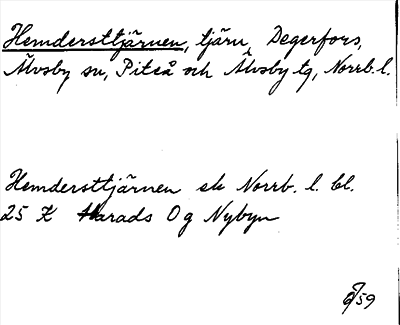 Hemdersttjärnen, tjärn, Degerfors,
Älvsby sn, Piteå och Älvsby tg, Norrb. l.
Hemdersttjärnen ek Norrb. l. bl.
25 K Harads Og Nybyn
59